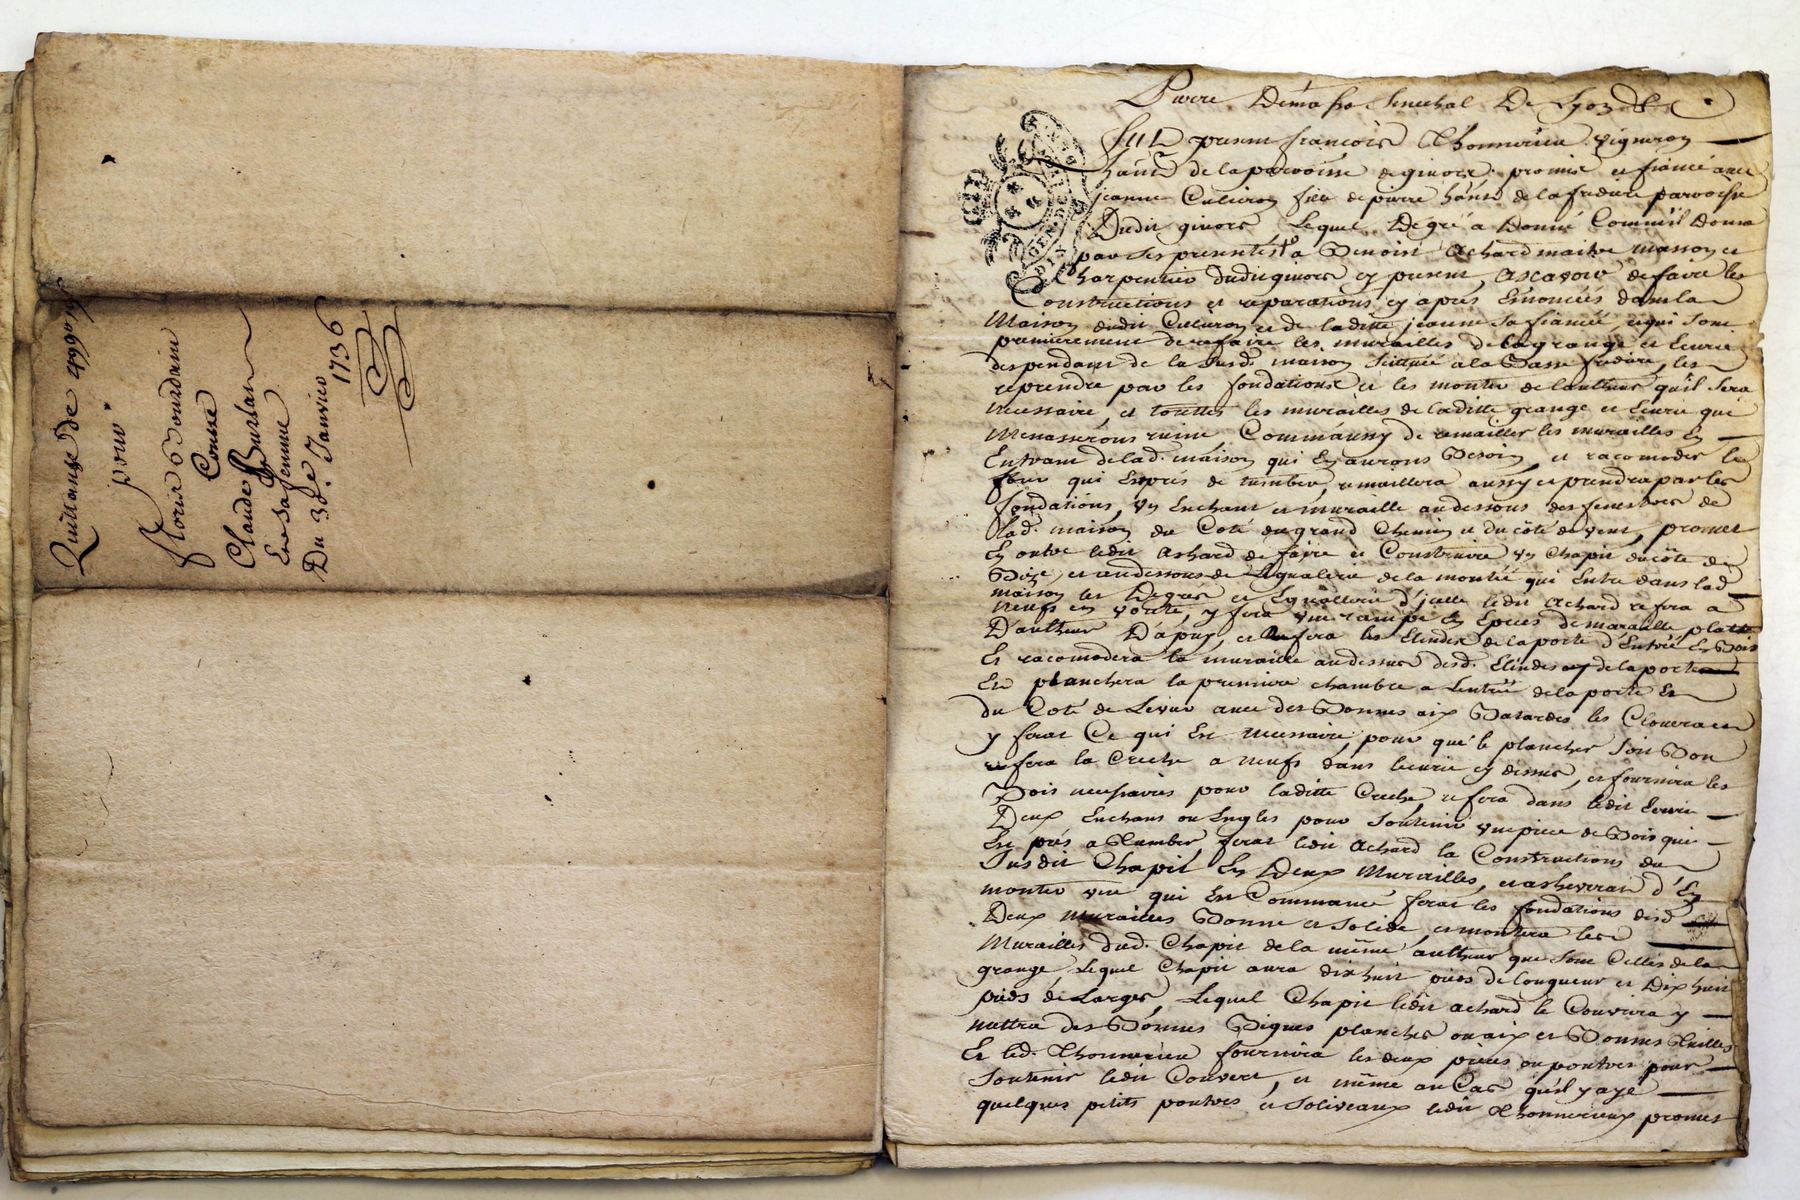 Quittance de 499#
pour
Floris Bourdain
Contre
Claude Bursan
Et sa femme
Du 30e Janvier
1736
Pierre Demasso Senechal De Lyon
Fut present françois Thonnerieu vigneron
hant de la parroisse de givors promis et fiancé avec
jeanne Culieron fille de pierre hant de la susdite parroisse
Dudit givors Lequel De gré à Donné Comme il Donne
par ses presentes a Benoist Achard maitre masson et
Charpentier dudit givors cy present, Ascavoir de faire les
Constructions et reparations cy apres Enoncées dans la
Maison dudit Culieron et de laditte jeanne sa fiancée, et qui sont
premierement de refaire les murailles de la grange et Ecurie
despendant de la susd. maison scittuée a la Basse fredière, les
reprendre par les fondations et les monter de lautheur qu'il sera
necessaire, et touttes les murailles de laditte grange et Ecurie qui
Menasserons ruine, Comm'aussy de remailler les murailles En
Entrant de lad. maison qui En aurons Besoin, et racomoder le
four qui Enpres de tomber, remaillera aussy et prendra par les
fondations, un Enchant et muraille au dessous des fenestres de
lad. maison du Coté du grand Chemin et du côté de vent, promet
En outre ledit Achard de faire et Construire un Chapit du côté de
Bize, et au dessous de Legualerie de la montée qui Entre dans lad.
maison les Degres et Leguallerie d'jcelle ledit Achard refera a
neufs en voute, y fera une rampe En Epeces de muraille platte
D'autheur D'apuy, et Refera les Elindes de la porte d'Entrée En Bois
Et racomodera la muraille au dessus desd. Elindes de la porte
Et planchera la premiere chambre a Lentrée de la porte Et
du Coté de Levar avec des Bonnes aix Batardes les Clouera et
y ferat Ce qui Est necessaire, pour que le plancher soit Bon
refera la Creche a neufs dans lecurie cy dessus, et fournira les
Bois necessaires pour laditte Creche, refera dans ledit Ecurie
Deux Enchans ou Engles pour soutenir une piece de Bois qui
Est prés a Tomber ferat ledit Achard la Constructions du
Susdit Chapit En Deux Murailles, et acheverat d'En
monter une qui Est Commancé ferat les fondations desd.
Deux murailles Bonne et solide, et montera les
Murailles dud. Chapit de la même autheur que sont Celles de la
grange, Lequel Chapit aura dixhuit pieds de longueur et Dix huit
pieds de Larges, Lequel Chapit ledit achard le Couvrira y
mettra des Bonnes Bignes planches ou aix et Bonnes Thuilles
Et led. Thonnerieu fournira les deux pieces ou poutres pour
soutenir ledit Couvert, et même au Cas qu'il y aye
quelques petits poutres et soliveaux ledit Thonnerieux promet